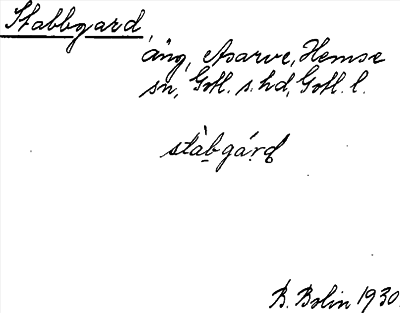 Stabbgard,
äng, Asarve, Hemse
sn, Gotl. s. hd, Gotl. l.
stàbgárd
B. Bolin 1930.